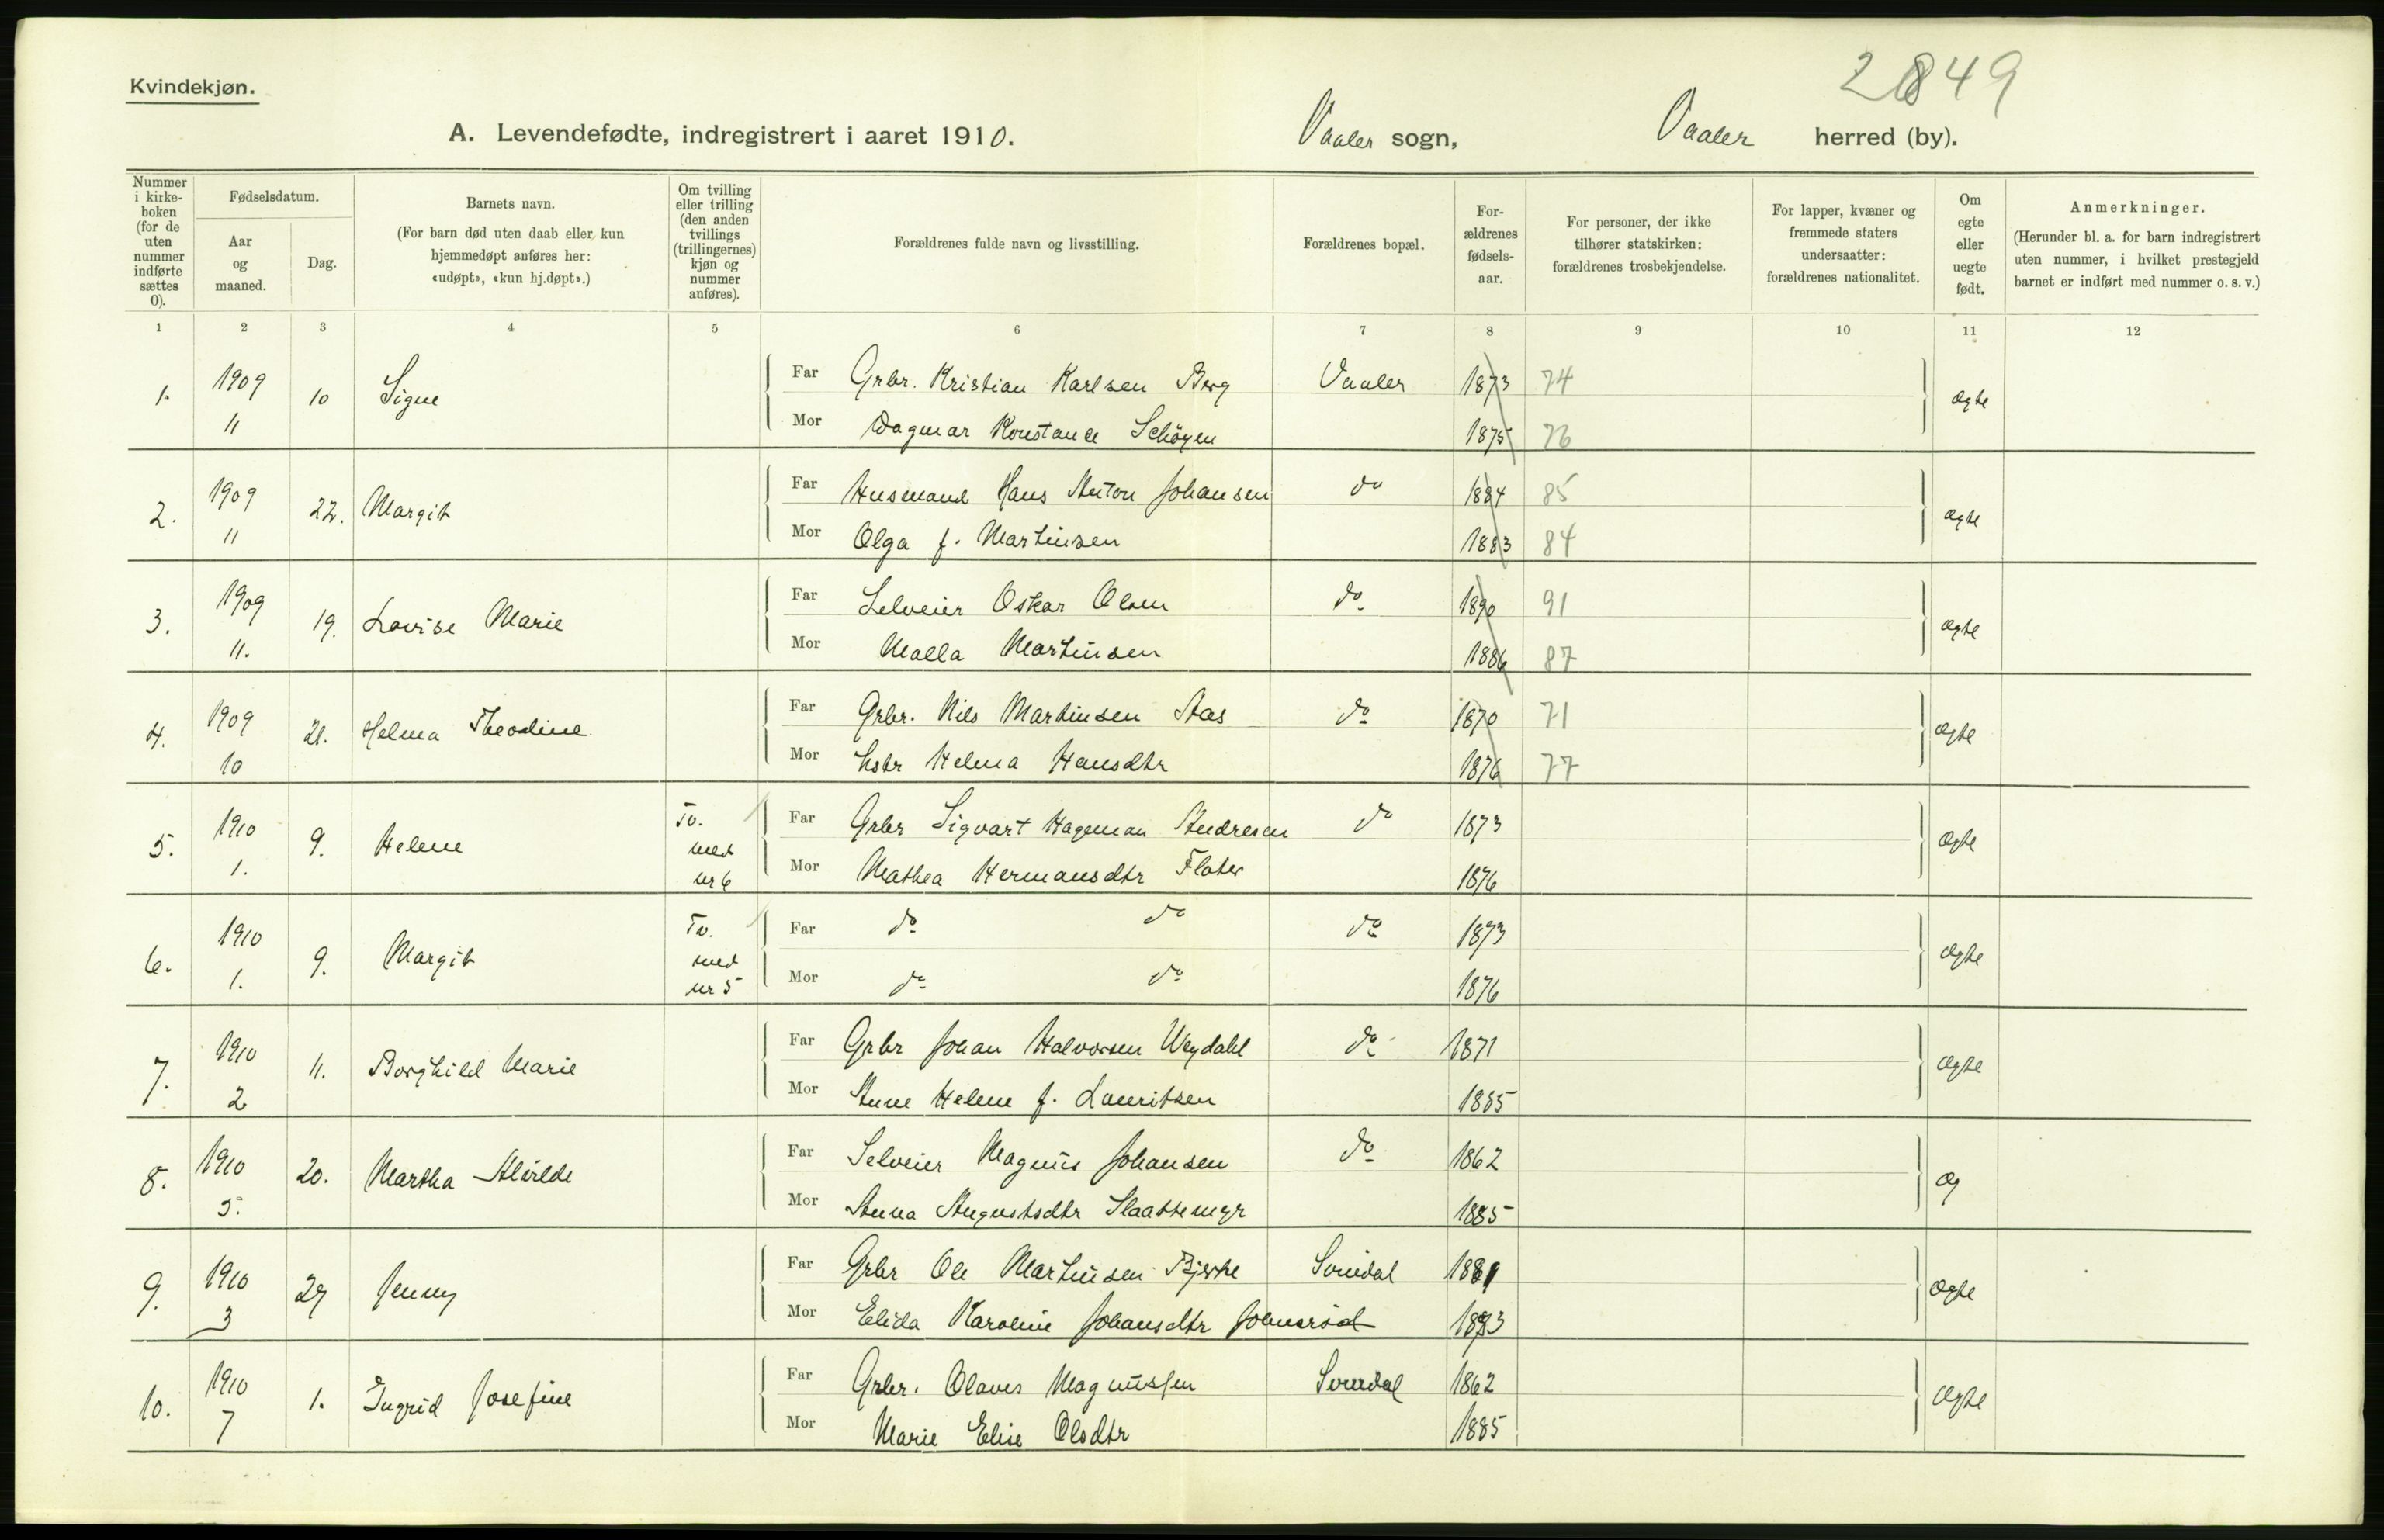 2849
Kvindekjøn.
A. Levendefødte, indregistrert i aaret 1910. Vaaler sogn, Vaaler herred (by).
Nummer i kirke-boken (for de uten nummer indførte sættes 0).
Fødselsdatum.
Aar og maaned.
Dag.
Barnets navn.
(For barn død uten daab eller kun hjemmedøpt anføres her: «udøpt», «kun hj.døpt».)
Om tvilling eller trilling (den anden tvillings (trillingernes) kjøn og nummer anføres).
Forældrenes fulde navn og livsstilling.
Forældrenes bopæl.
For-ældrenes fødsels-aar.
For personer, der ikke tilhører statskirken: forældrenes trosbekjendelse.
For lapper, kvæner og fremmede staters undersaatter: forældrenes nationalitet.
Om egte eller uegte født.
Anmerkninger.
(Herunder bl. a. for barn indregistrert uten nummer, i hvilket prestegjeld barnet er indført med nummer o. s. v.)
1 2 3 4 5 6 7 8 9 10 11 12
1. 1909 11 10 Signe
Far Grbr. Kristian Karlsen Berg Vaaler 1873 74 ægte
Mor Dagmar Konstance Schøyen 1875 76
2. 1909 11 22. Margit
Far Husmand Hans Anton Johansen do 1884 85 ægte
Mor Olga f. Martinsen 1883 84
3. 1909 11. 19. Lovise Marie
Far Selveier Oskar Olsen do 1890 91 ægte
Mor Malla Martinsen 1886 87
4. 1909 10 21. Helma Theodine
Far Grbr. Nils Martinsen Aas do 1870 71 ægte
Mor Hstr Helma Hansdtr 1876 77
5. 1910 1. 9. Helene Tv. med nr 6
Far Grbr Sigvart Hageman Andresen do 1873 ægte
Mor Mathea Hermansdtr Flater 1876
6. 1910 1. 9. Margit Tv. med nr 5
Far do do do 1873 ægte
Mor do do 1876
7. 1910 2 11. Borghild Marie
Far Grbr Johan Halvorsen Weydahl do 1871 ægte
Mor Anne Helene f. Lauritsen 1885
8. 1910 5. 20. Martha Alvilde
Far Selveier Magnus Johansen do 1862 æg
Mor Anna Augustsdtr Slaattemyr 1885
9. 1910 3 27 Jenny
Far Grbr Ole Martinsen Bjerke Svindal 1881 ægte
Mor Elida Karoline Johansdtr Johnsrød 1883
10. 1910 7 1. Ingrid Josefine
Far Grbr. Olaves Magnussen Svindal 1862 ægte
Mor Marie Elise Olsdtr 1885